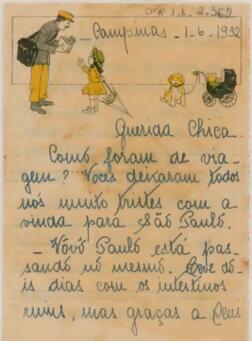 CMP 2.1. 2.362
Campinas - 1-6-1932
Querida Chica.
Como foram de via-
gem? Voces deixaram todos
nós muito tristes com a
vinda para São Paulo.
- Vôvô Paulo está pas-
sando no mesmo. Teve do-
is dias com os intestinos
ruins, mas graças a Deus